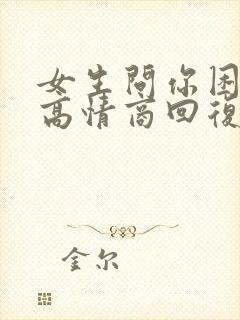 女生問你困
高情商回復
金尔